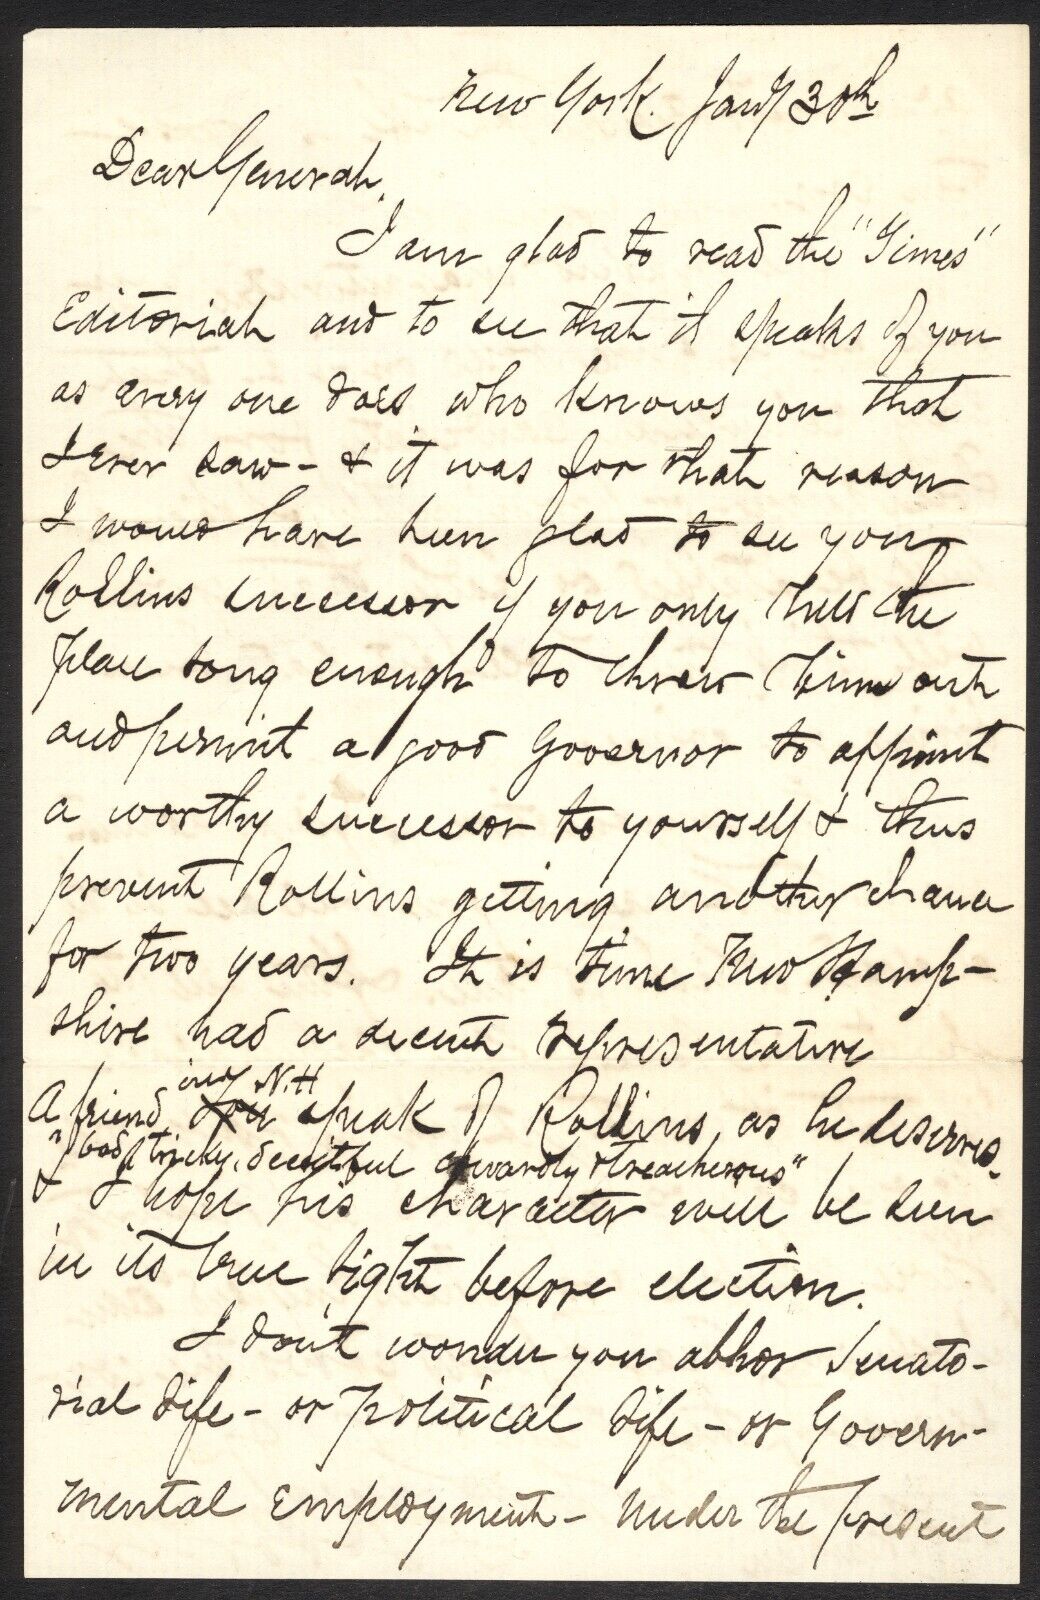 New York. Jany 30th
Dear General,
I am glad to read the "Times"
Editorial and to see that it speaks of you
as every one does who knows you that
I ever saw - & it was for that reason
I would have been glad to see you
Rollins successor if you only held the
place long enough to throw him out
and permit a good Governor to appoint
a worthy successor to yourself & thus
prevent Rollins getting another chance
for two years. It is time New Hamp-
shire had a decent representative
in N.H
A friend speak of Rollins, as he deserves
"bad, tricky, deceitful cowardly & treacherous"
& I hope his character will be seen
in its true light before election.
I don't wonder you abhor Senato-
rial life - or political life - or Govern-
mental employment - under the present